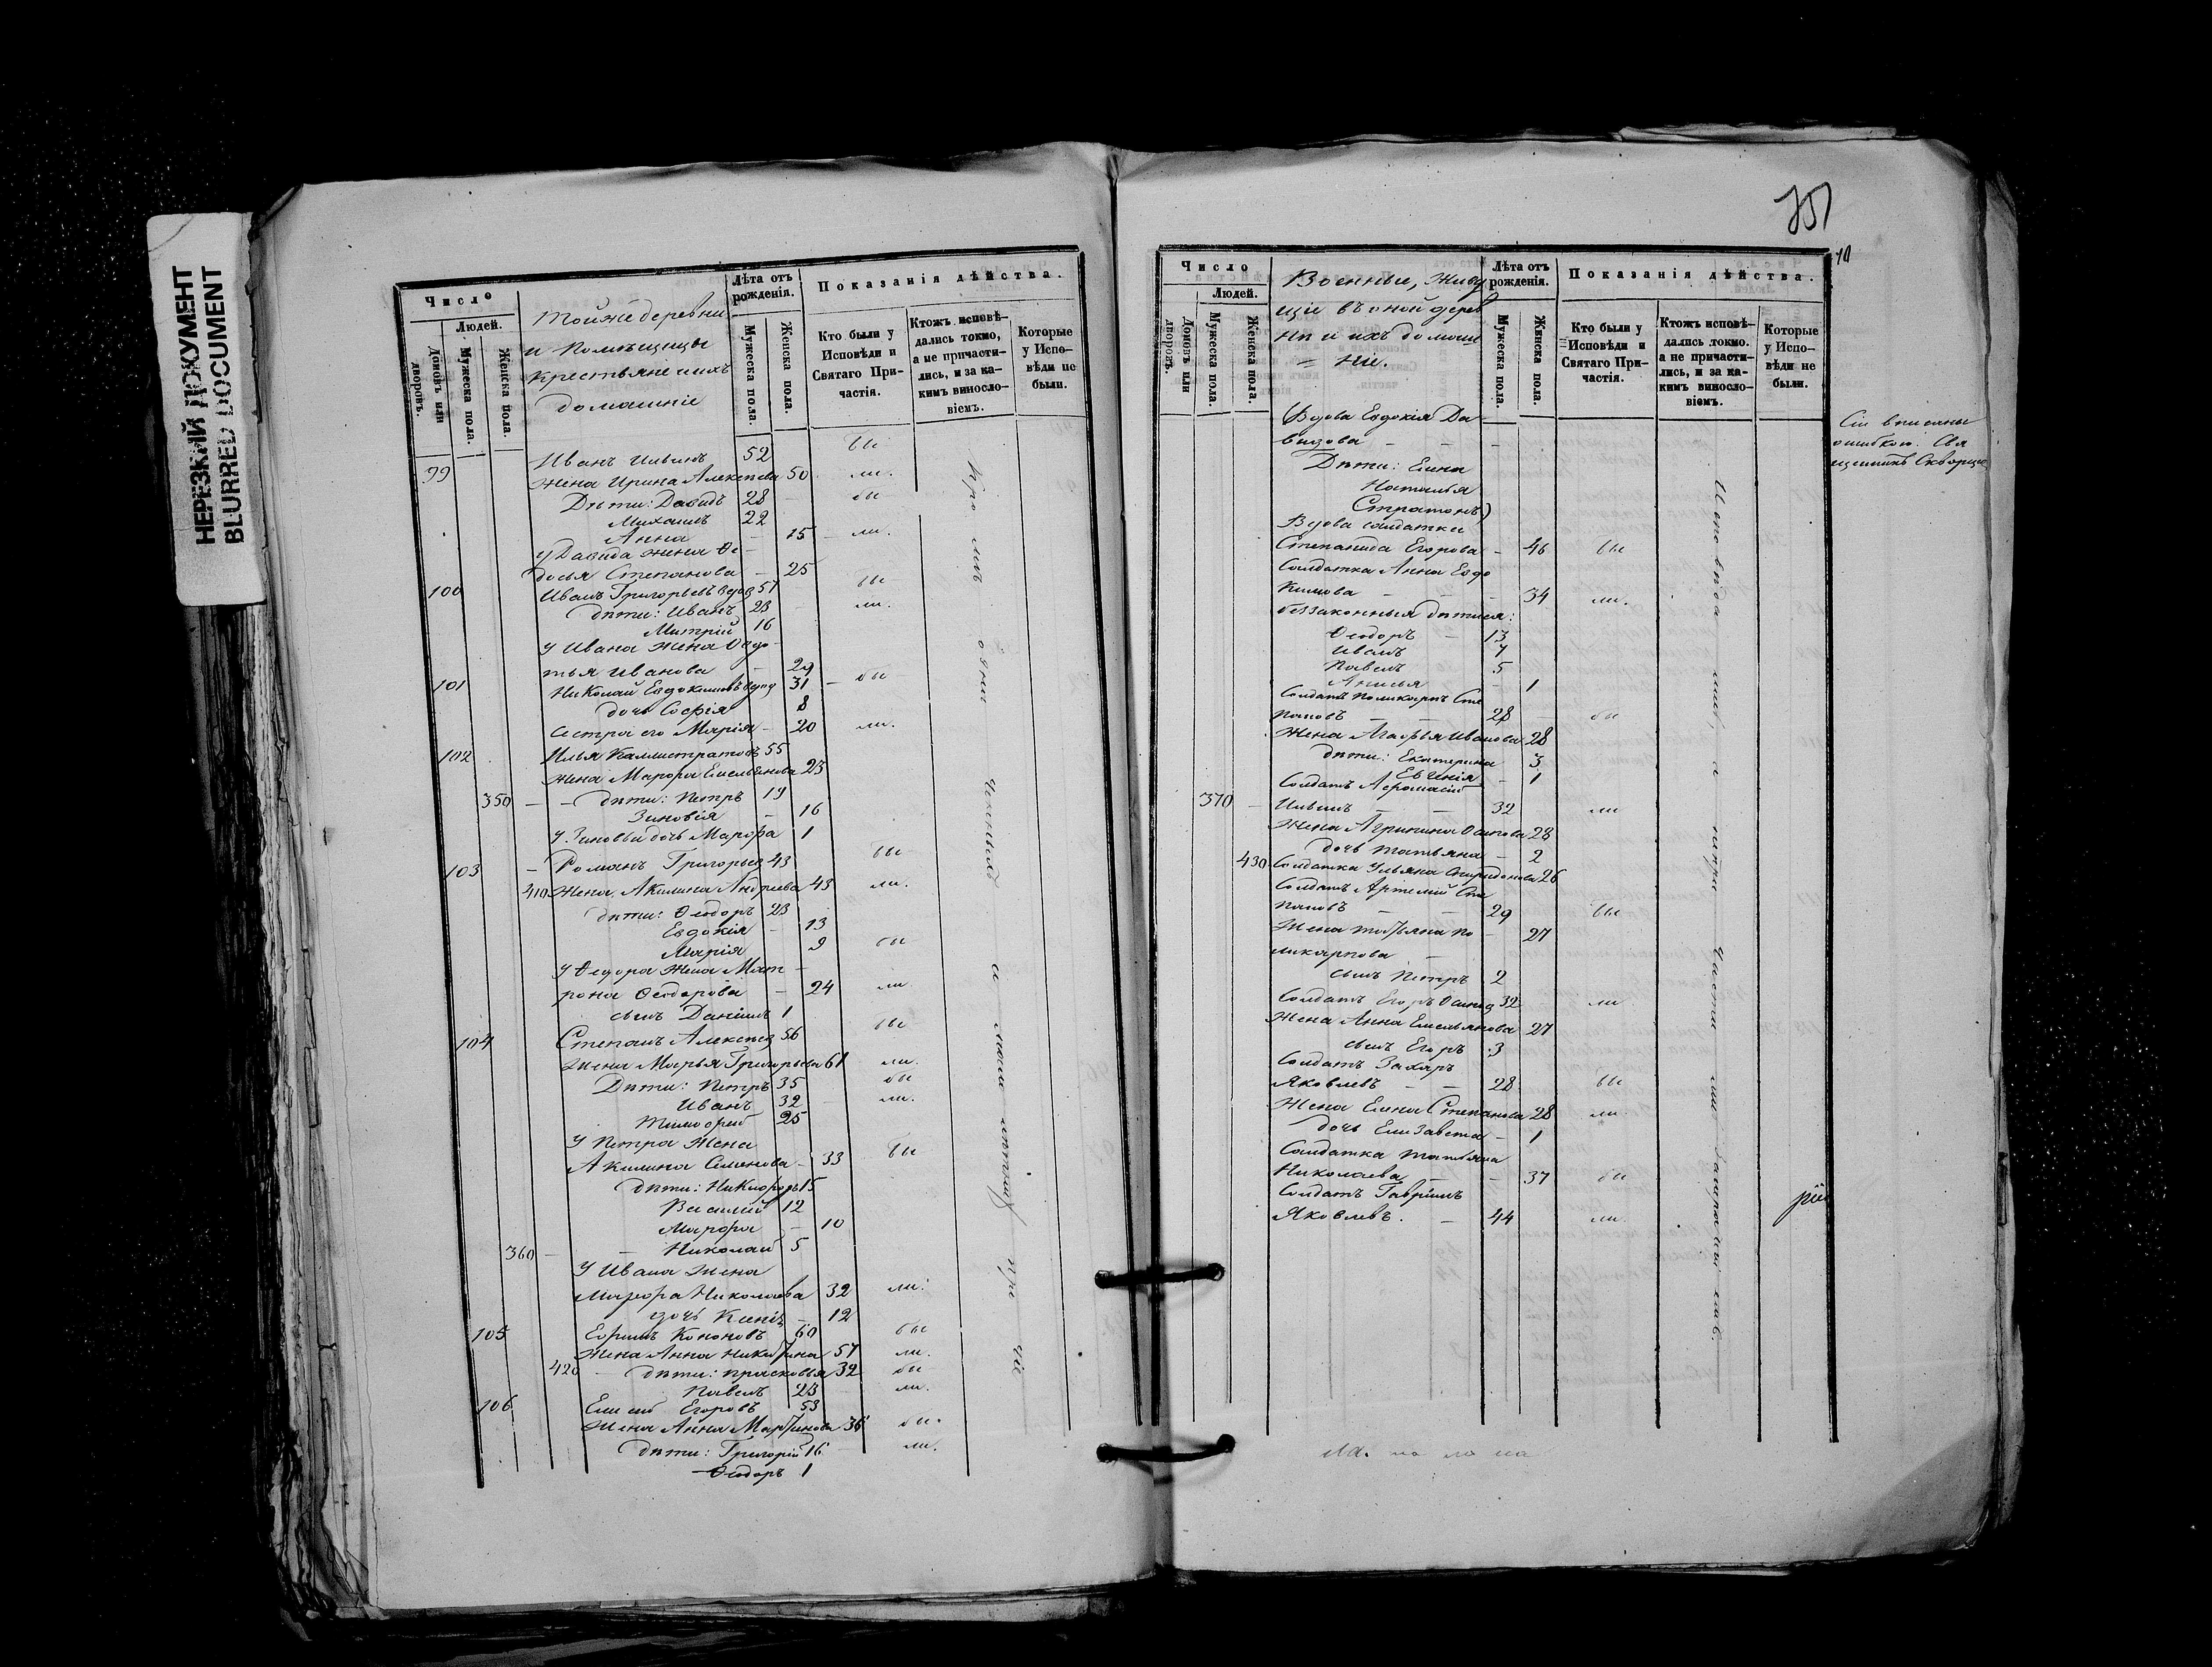 НЕРЕЗКИЙ ДОКУМЕНТ
BLURRED DOCUMENT
Число
Людей.
Домовъ или дворовъ.
Мужеска пола.
Женска пола.
Тойже деревни
и Помѣщицы
крестьяне и ихъ
домашніе
Лѣта отъ рожденія.
Мужеска пола.
Женска пола.
Показанія дѣйства.
Кто были у Исповѣди и Святаго Причастія.
Ктожъ исповѣдались токмо, а не причастились, и за какимъ винословіемъ.
Которые у Исповѣди не были.
Иванъ Ильинъ 52 бы
99 Жена Ирина Алексѣева 50 ли.
Дѣти: Давидъ 28 бы
Михаилъ 22
Анна - 15 ли.
У Давида жена Ѳе-
досья Степанова - 25
100 Иванъ Григорьевъ вдов 57 бы
дѣти: Иванъ 23 ли.
Митрій 16
У Ивана жена Авдо-
тья Иванова - 29
101 Николай Евдокимовъ вдов 31 - бы
дочь Софія 8
Сестра его Марія - 20 ли.
102 Илья Каллистратовъ 55
Жена Марфа Емельянова 23
350 - - дѣти: Петръ 19
Зиновія - 16
У Зиновьи дочь Марфа 1
103 - Романъ Григорьев 43 бы
410 Жена Акилина Андреева 43 ли.
дѣти: Ѳеодоръ 23
Евдокія - 13
Марія 9 бы
У Ѳеодора жена Мат-
рона Ѳеодорова - 24 ли
сынъ Даніилъ 1
104 Степанъ Алексѣев 56 бы
Жена Марья Григорьева 61 ли.
Дѣти: Петръ 35 бы
Иванъ 32 ли.
Тимофей 25
У Петра жена
Акилина Семенова - 33 бы
дѣти: Никифоръ 15
Василій 12
Марфа - 10
360 - - Николай 5
У Ивана жена
Марфа Николаева 32 ли.
дочь Ксенія - 12
105 Ефимъ Кононовъ 60 бы
Жена Анна Никитина 57 ли.
420 - дѣти: Прасковья 32 бы
Павелъ 23 ли.
106 Елисей Егоровъ 53
Жена Анна Мартинова 36 бы
дѣти: Григорій 16 ли.
Ѳеодоръ 1
751
Число
Людей.
Домовъ или дворовъ.
Мужеска пола.
Женска пола.
Военные, живу
щіе въ оной дерев
нѣ и ихъ домаш
= ніе.
Лѣта отъ рожденія.
Мужеска пола.
Женска пола.
Показанія дѣйства.
Кто были у Исповѣди и Святаго Причастія.
Ктожъ исповѣдались токмо, а не причастились, и за какимъ винословіемъ.
Которые у Исповѣди не были.
(Вдова Евдокія Да
видова - - -
Дѣти: Елена
Наталья
Стратонъ)
Сіи вписаны
ошибкою. Свя
щенникъ Скворцо
Вдова солдатка
Степанида Егорова - 46 бы
Солдатка Анна Евдо
кимова - - 34 ли.
беззаконныя дѣти ея:
Ѳеодоръ - 13
Иванъ 7
Павелъ 5
Анисья - 1
Солдатъ Поликарпъ Сте
пановъ - - 28 бы
Жена Агафья Иванова 28
дѣти: Екатерина 3
Евгенія - 1
Солдатъ Аѳонасій
370 - Ильинъ - - 32 ли
Жена Агрипина Осипова 28
дочь Татьяна - 2
430 Солдатка Ульяна Спиридонова 26
Солдатъ Артемій Сте
пановъ - - 29 бы
Жена Татьяна По - 27
ликарпова -
сынъ Петръ 2
Солдатъ Егоръ Осипов 32 ли
Жена Анна Емельянова 27
сынъ Егоръ 3
Солдатъ Захаръ
Яковлевъ - - 28 бы
Жена Елена Степанова 28 ли.
дочь Елизавета - 1
Солдатка Татьяна
Николаева - - 37 бы
Солдатъ Гавріилъ
Яковлевъ. - 44 ли.